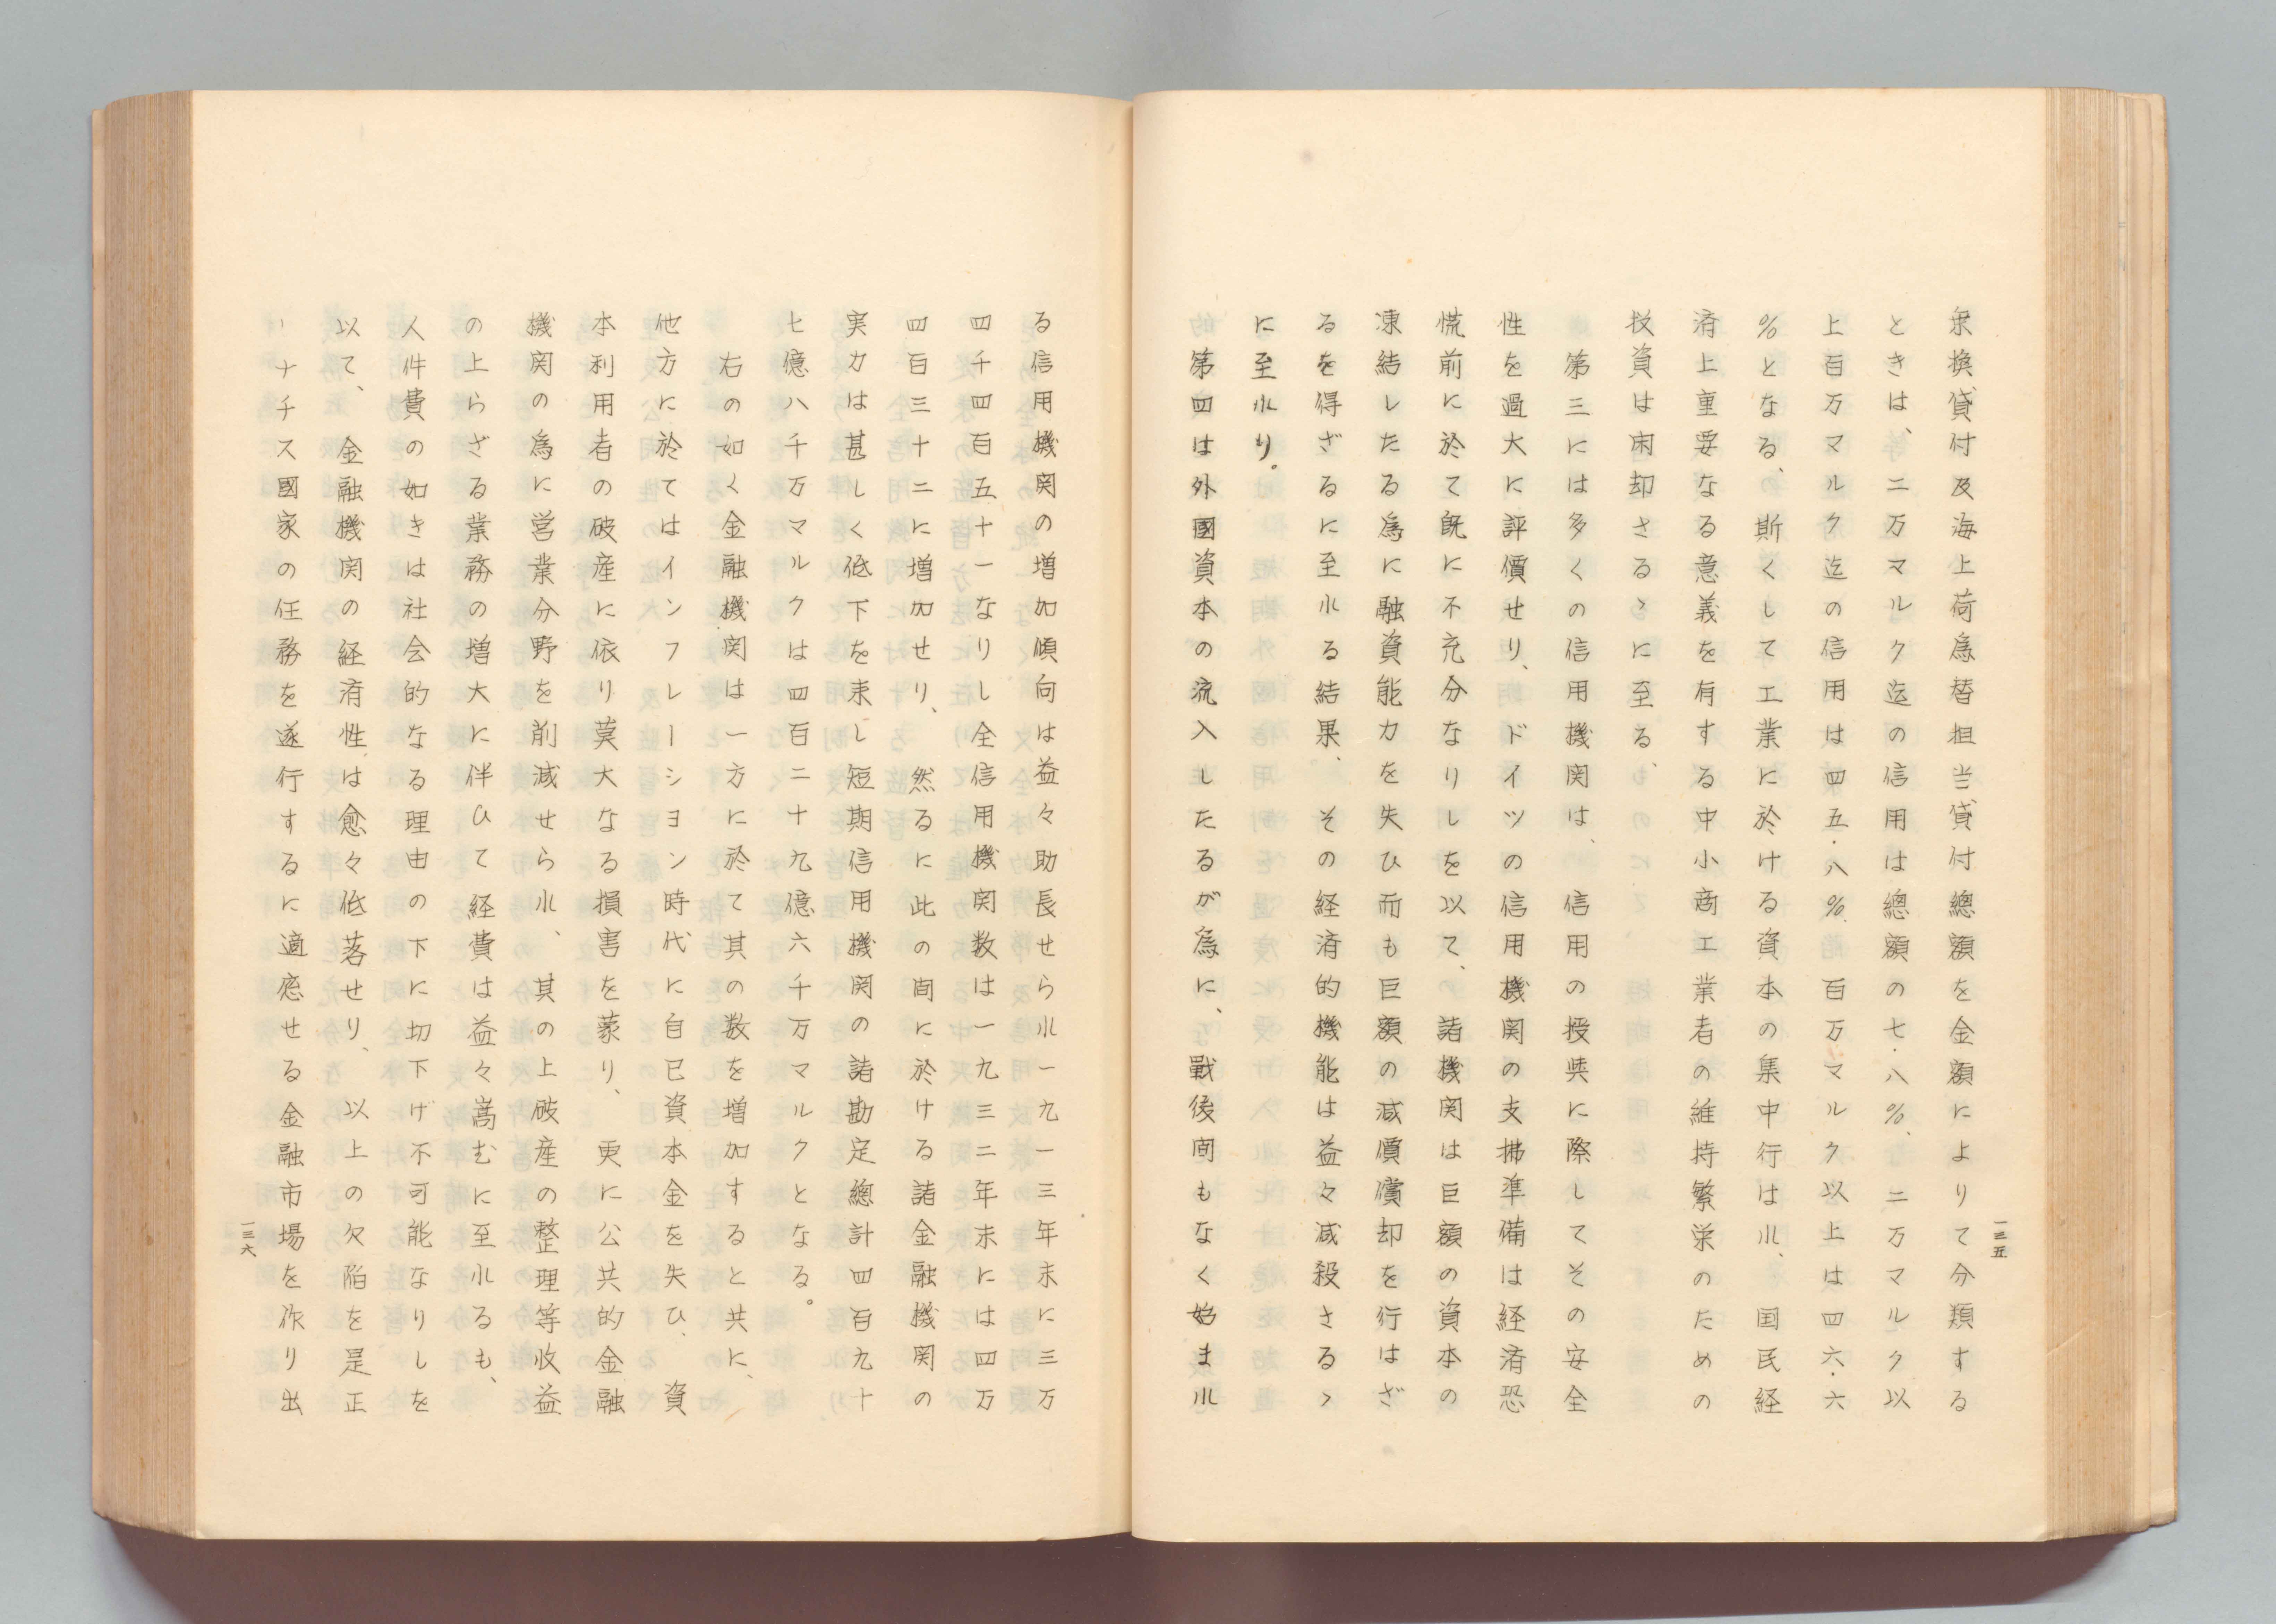 一三五
乗換貸付及海上荷為替担当貸付總額を金額によりて分類する
ときは、二万マルク迄の信用は總額の七・八％、二万マルク以
上百万マルク迄の信用は四五・八％、百万マルク以上は四六・六
％となる、斯くして工業に於ける資本の集中行はれ、国民経
済上重要なる意義を有する中小商工業者の維持繁栄のための
投資は困却さるゝに至る、
第三には多くの信用機関は、信用の授與に際してその安全
性を過大に評價せり、ドイツの信用機関の支拂準備は経済恐
慌前に於て既に不充分なりしを以て、諸機関は巨額の資本の
凍結したる為に融資能力を失ひ而も巨額の減價償却を行はざ
るを得ざるに至れる結果、その経済的機能は益々減殺さるゝ
に至れり。
第四は外國資本の流入したるが為に、戰後間もなく始まれ
る信用機関の増加傾向は益々助長せられ一九一三年末に三万
四千四百五十一なりし全信用機関数は一九三二年末には四万
四百三十二に増加せり、然るに此の間に於ける諸金融機関の
実力は甚しく低下を来し短期信用機関の諸勘定總計四百九十
七億八千万マルクは四百二十九億六千万マルクとなる。
右の如く金融機関は一方に於て其の数を増加すると共に、
他方に於てはインフレーシヨン時代に自己資本金を失ひ、資
本利用者の破産に依り莫大なる損害を蒙り、更に公共的金融
機関の為に営業分野を削減せられ、其の上破産の整理等收益
の上らざる業務の増大に伴ひて経費は益々嵩むに至れるも、
人件費の如きは社会的なる理由の下に切下げ不可能なりしを
以て、金融機関の経済性は愈々低落せり、以上の欠陥を是正
しナチス國家の任務を遂行するに適應せる金融市場を作り出
一三六